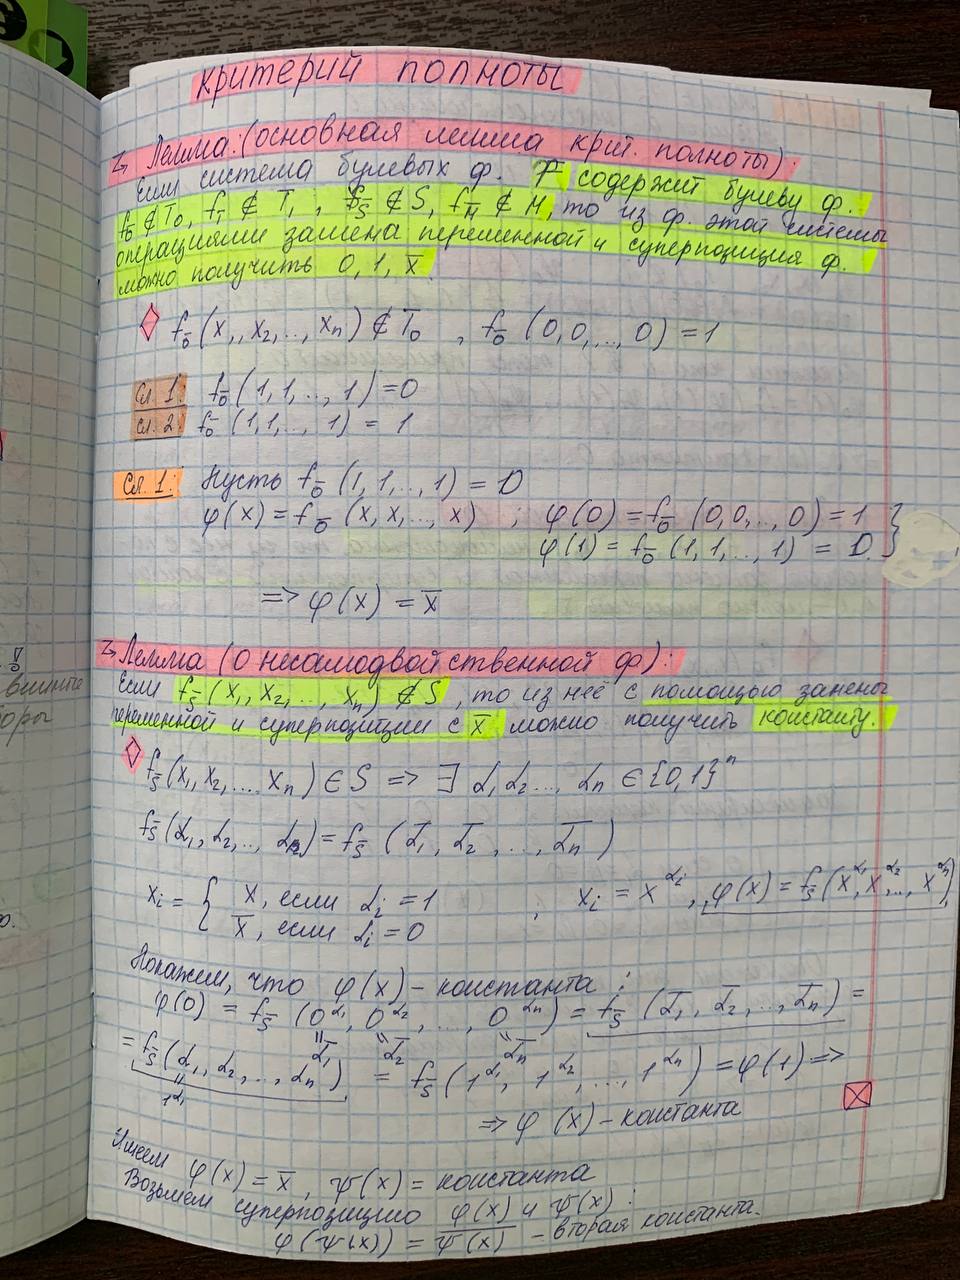 Критерий полноты
Лемма: (основная лемма крит. полноты):
Если система булевых ф. F содержит булеву ф.
f₀̄ ∉ T₀, f₁̄ ∉ T₁, f_S̄ ∉ S, f_M̄ ∉ M, то из ф. этой системы
операциями замена переменной и суперпозиция ф.
можно получить 0, 1, x̄.
f₀̄ (x₁, x₂, .., xₙ) ∉ T₀ , f₀̄ (0,0,..., 0) = 1
Сл. 1: f₀̄ (1,1,.., 1) = 0
Сл. 2: f₀̄ (1,1,.., 1) = 1
Сл. 1: Пусть f₀̄ (1,1,..,1) = 0
φ(x) = f₀̄ (x, x,.., x) ; φ(0) = f₀̄ (0,0,..,0) = 1
φ(1) = f₀̄ (1,1,..., 1) = 0
=> φ(x) = x̄
Лемма (о несамодвойственной ф):
Если f_S̄ (x₁, x₂,..., xₙ) ∉ S, то из неё с помощью замены
переменной и суперпозиции с x̄ можно получить константу.
f_S̄ (x₁, x₂,.... xₙ) ∈ S => ∃ α₁ α₂ ..., αₙ ∈ {0,1}ⁿ
f_S̄ (α₁, α₂,.., αₙ) = f_S̄ (ᾱ₁, ᾱ₂, ..., ᾱₙ)
xᵢ = { x, если αᵢ = 1 , xᵢ = x^αᵢ, φ(x) = f_S̄ (x^α₁, x^α₂,.., x^αₙ)
x̄, если αᵢ = 0
Покажем, что φ(x) - константа:
φ(0) = f_S̄ (0^α₁, 0^α₂, ..., 0^αₙ) = f_S̄ (ᾱ₁, ᾱ₂, ..., ᾱₙ) =
" ᾱ₁ " ᾱ₂ " ᾱₙ
= f_S̄ (α₁, α₂,.., αₙ) = f_S̄ (1^α₁, 1^α₂, ..., 1^αₙ) = φ(1) =>
" 1^α₁
=> φ (x) - константа
Имеем φ(x) = x̄, ψ(x) = константа
Возьмем суперпозицию φ(x) и ψ(x):
φ(ψ(x)) = \overline{ψ(x)} - вторая константа.